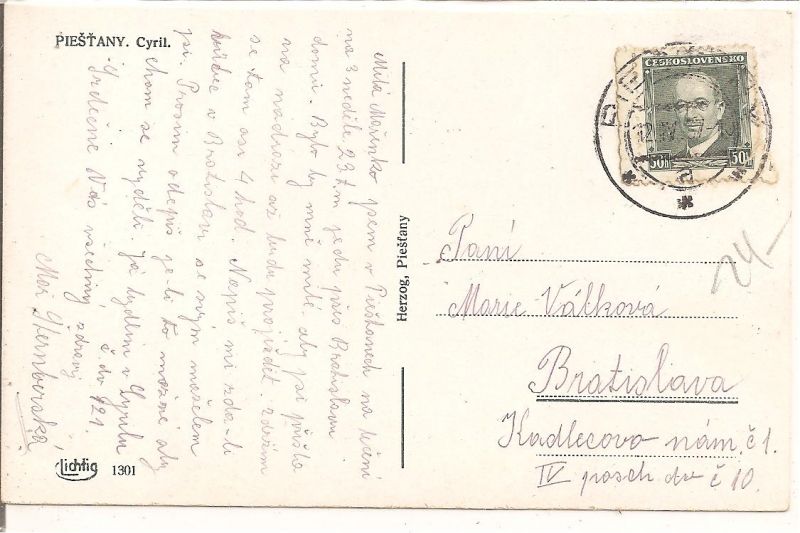 PIEŠŤANY. Cyril.
Milá Mařenko jsem v Piešťanech na léčení
na 3 neděle 23.t.m jedu přes Bratislavu
domů. Bylo by mně milé. aby jsi přišla
na nádraží až budu projíždět. zdržím
se tam asi 4 hod. Napiš mi zda-li
v Bratislavě se svým manželem
jsi. Prosím odepiš je-li to možné aby
chom se viděli. Já bydlím v Cyrilu
č dv 121.
Srdečně Vás všechny zdraví
Meži Šternberská
Lichtig 1301
Herzog, Piešťany
ČESKOSLOVENSKO
50h 50h
Paní
Marie Válková
Bratislava
Kadlecovo nám. č 1.
IV posch dv č 10.
24-